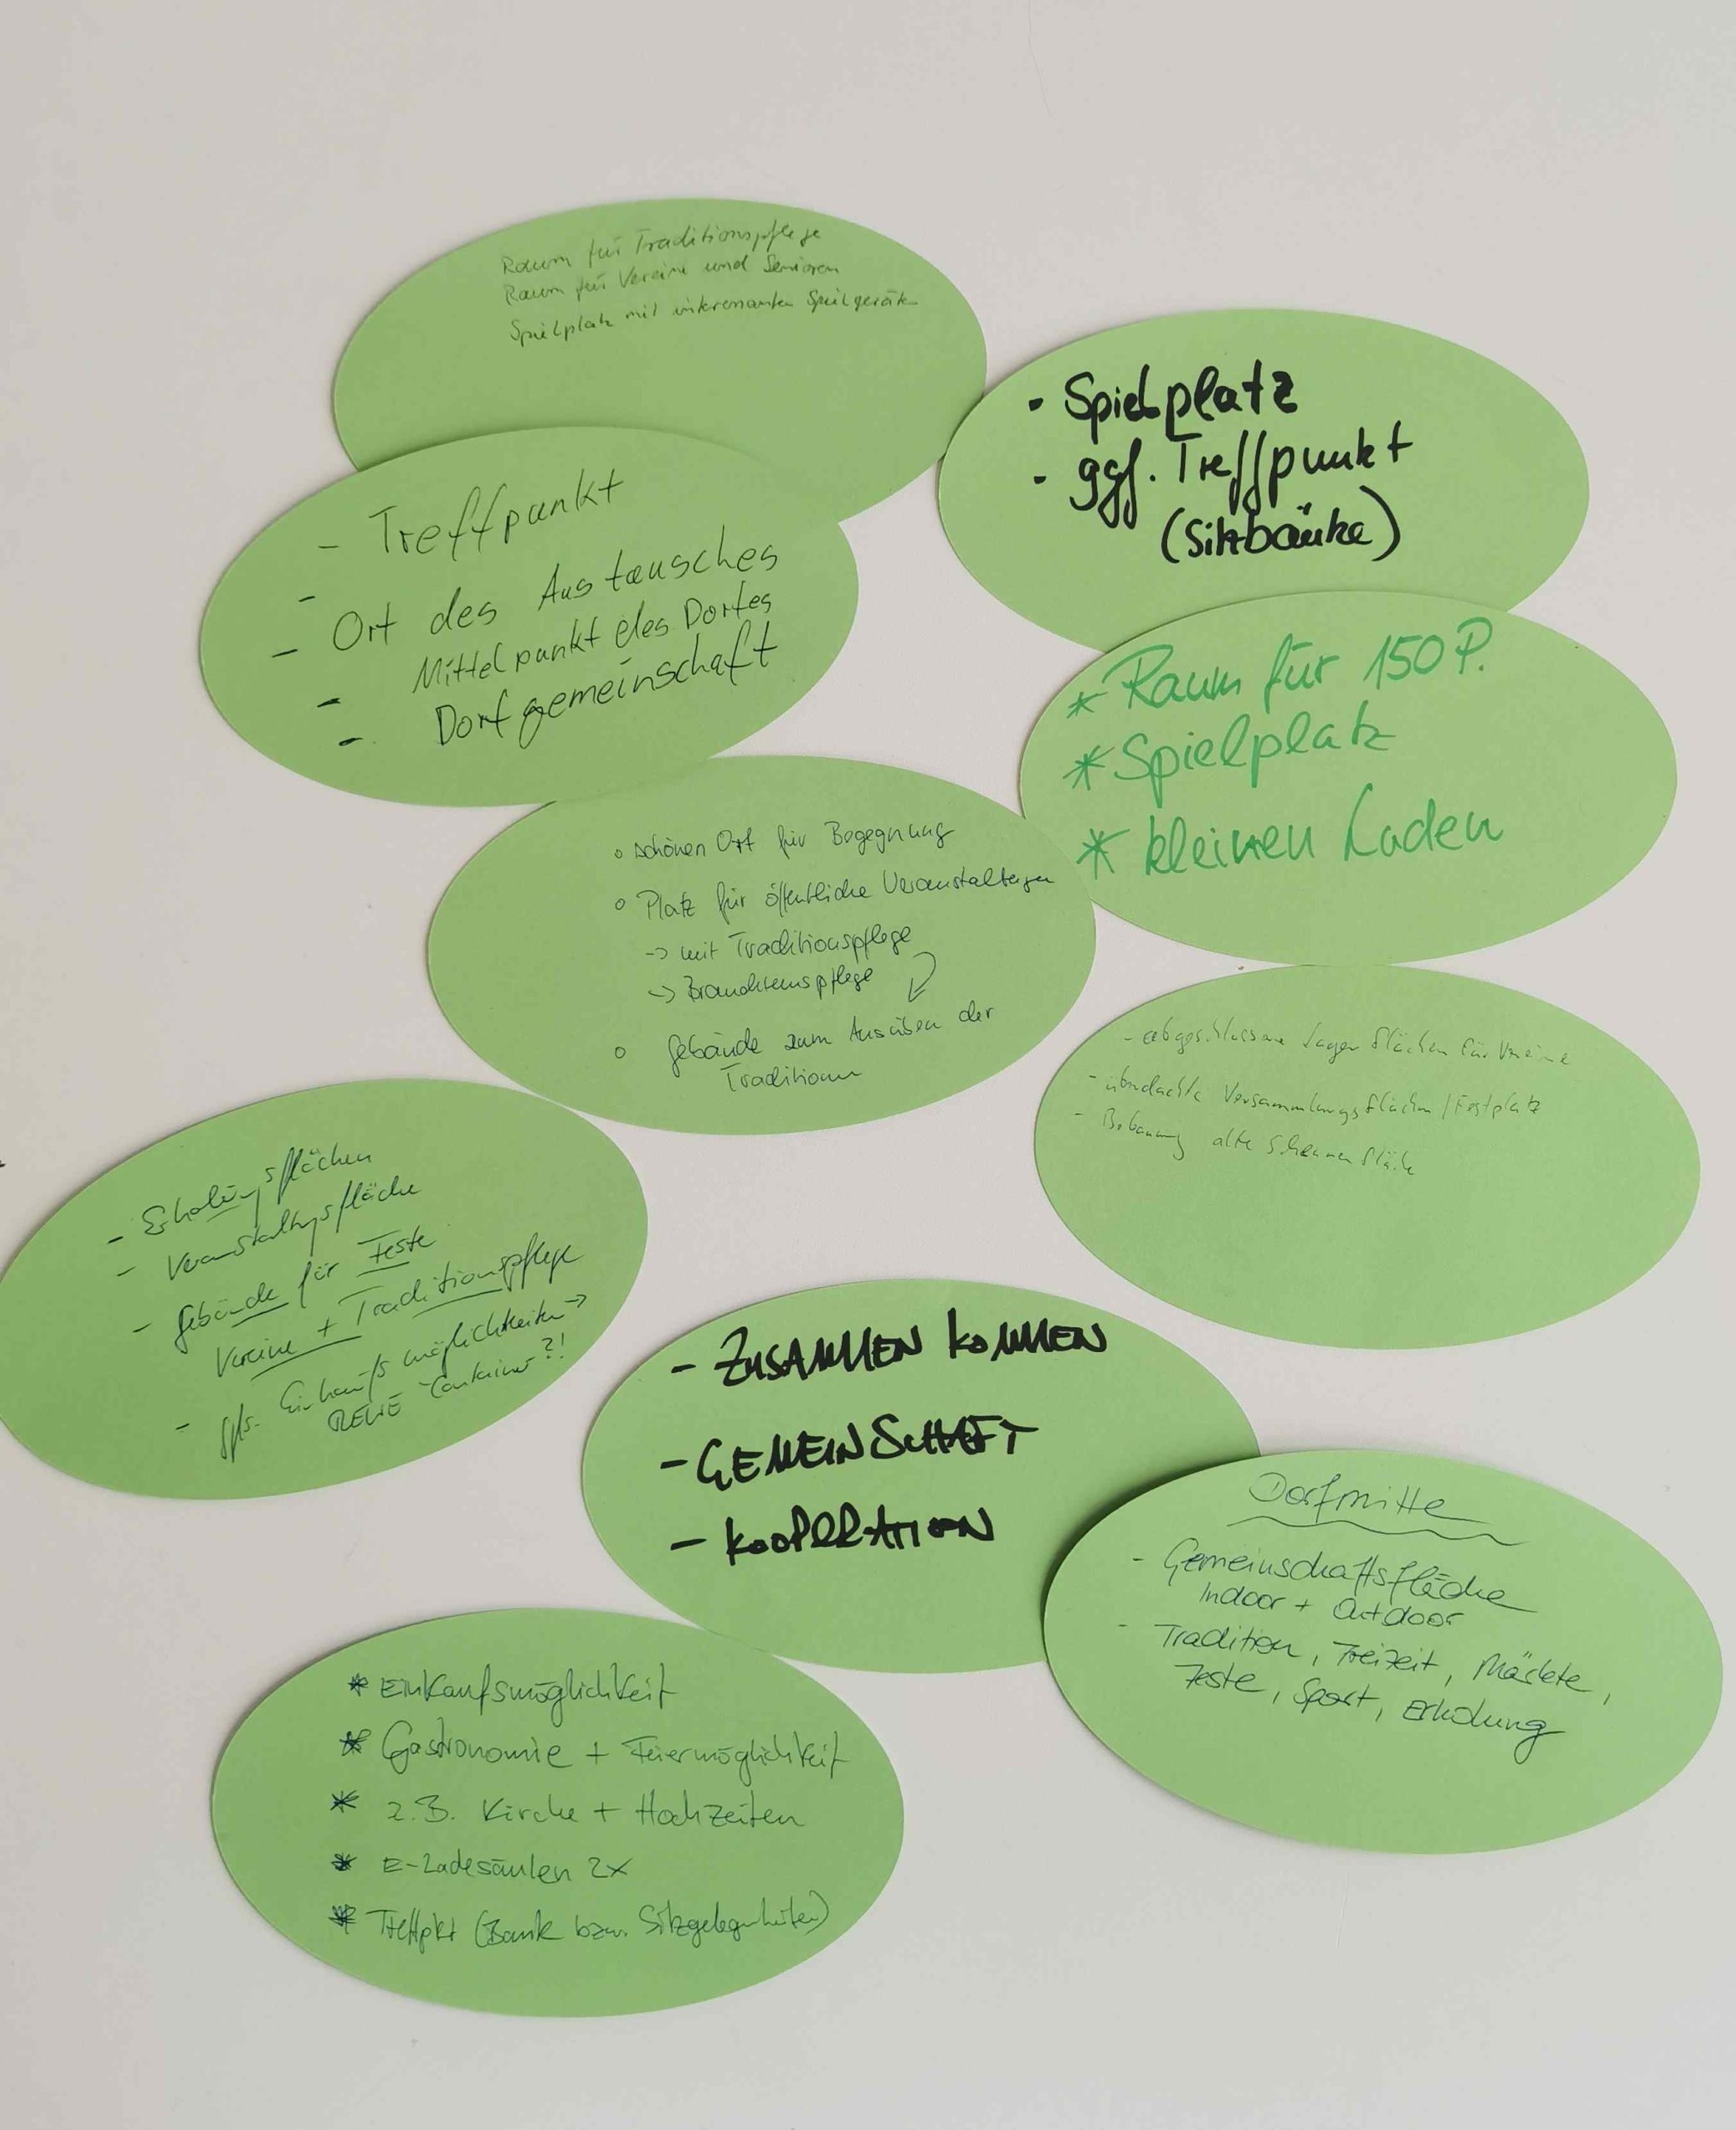 Raum für Traditionspflege
Raum für Vereine und Senioren
Spielplatz mit interessanten Spielgeräten
- Spielplatz
- ggf. Treffpunkt
(Sitzbänke)
- Treffpunkt
-
- Ort des Austausches
- Mittelpunkt des Dorfes
- Dorfgemeinschaft
* Raum für 150 P.
* Spielplatz
* kleinen Laden
o schönen Ort für Begegnung
o Platz für öffentliche Veranstaltungen
-> mit Traditionspflege
-> Brauchtumspflege
o Gebäude zum Ausüben der
Traditionen
- abgeschlossene Lagerflächen für Vereine
- überdachte Versammlungsflächen / Festplatz
- Bebauung alte Scheunenfläche
- Erholungsflächen
- Veranstaltungsfläche
- Gebäude für Feste
Vereine + Traditionspflege
- ggfs. Einkaufsmöglichkeiten ->
REWE Container ?!
- ZUSAMMEN KOMMEN
- GEMEINSCHAFT
- KOOPERATION
Dorfmitte
- Gemeinschaftsfläche
Indoor + Outdoor
- Tradition, Freizeit, Märkte,
Feste, Sport, Erholung
* Einkaufsmöglichkeit
* Gastronomie + Feiermöglichkeit
* z.B. Kirche + Hochzeiten
* E-Ladesäulen 2x
* Treffpkt (Bank bzw. Sitzgelegenheiten)